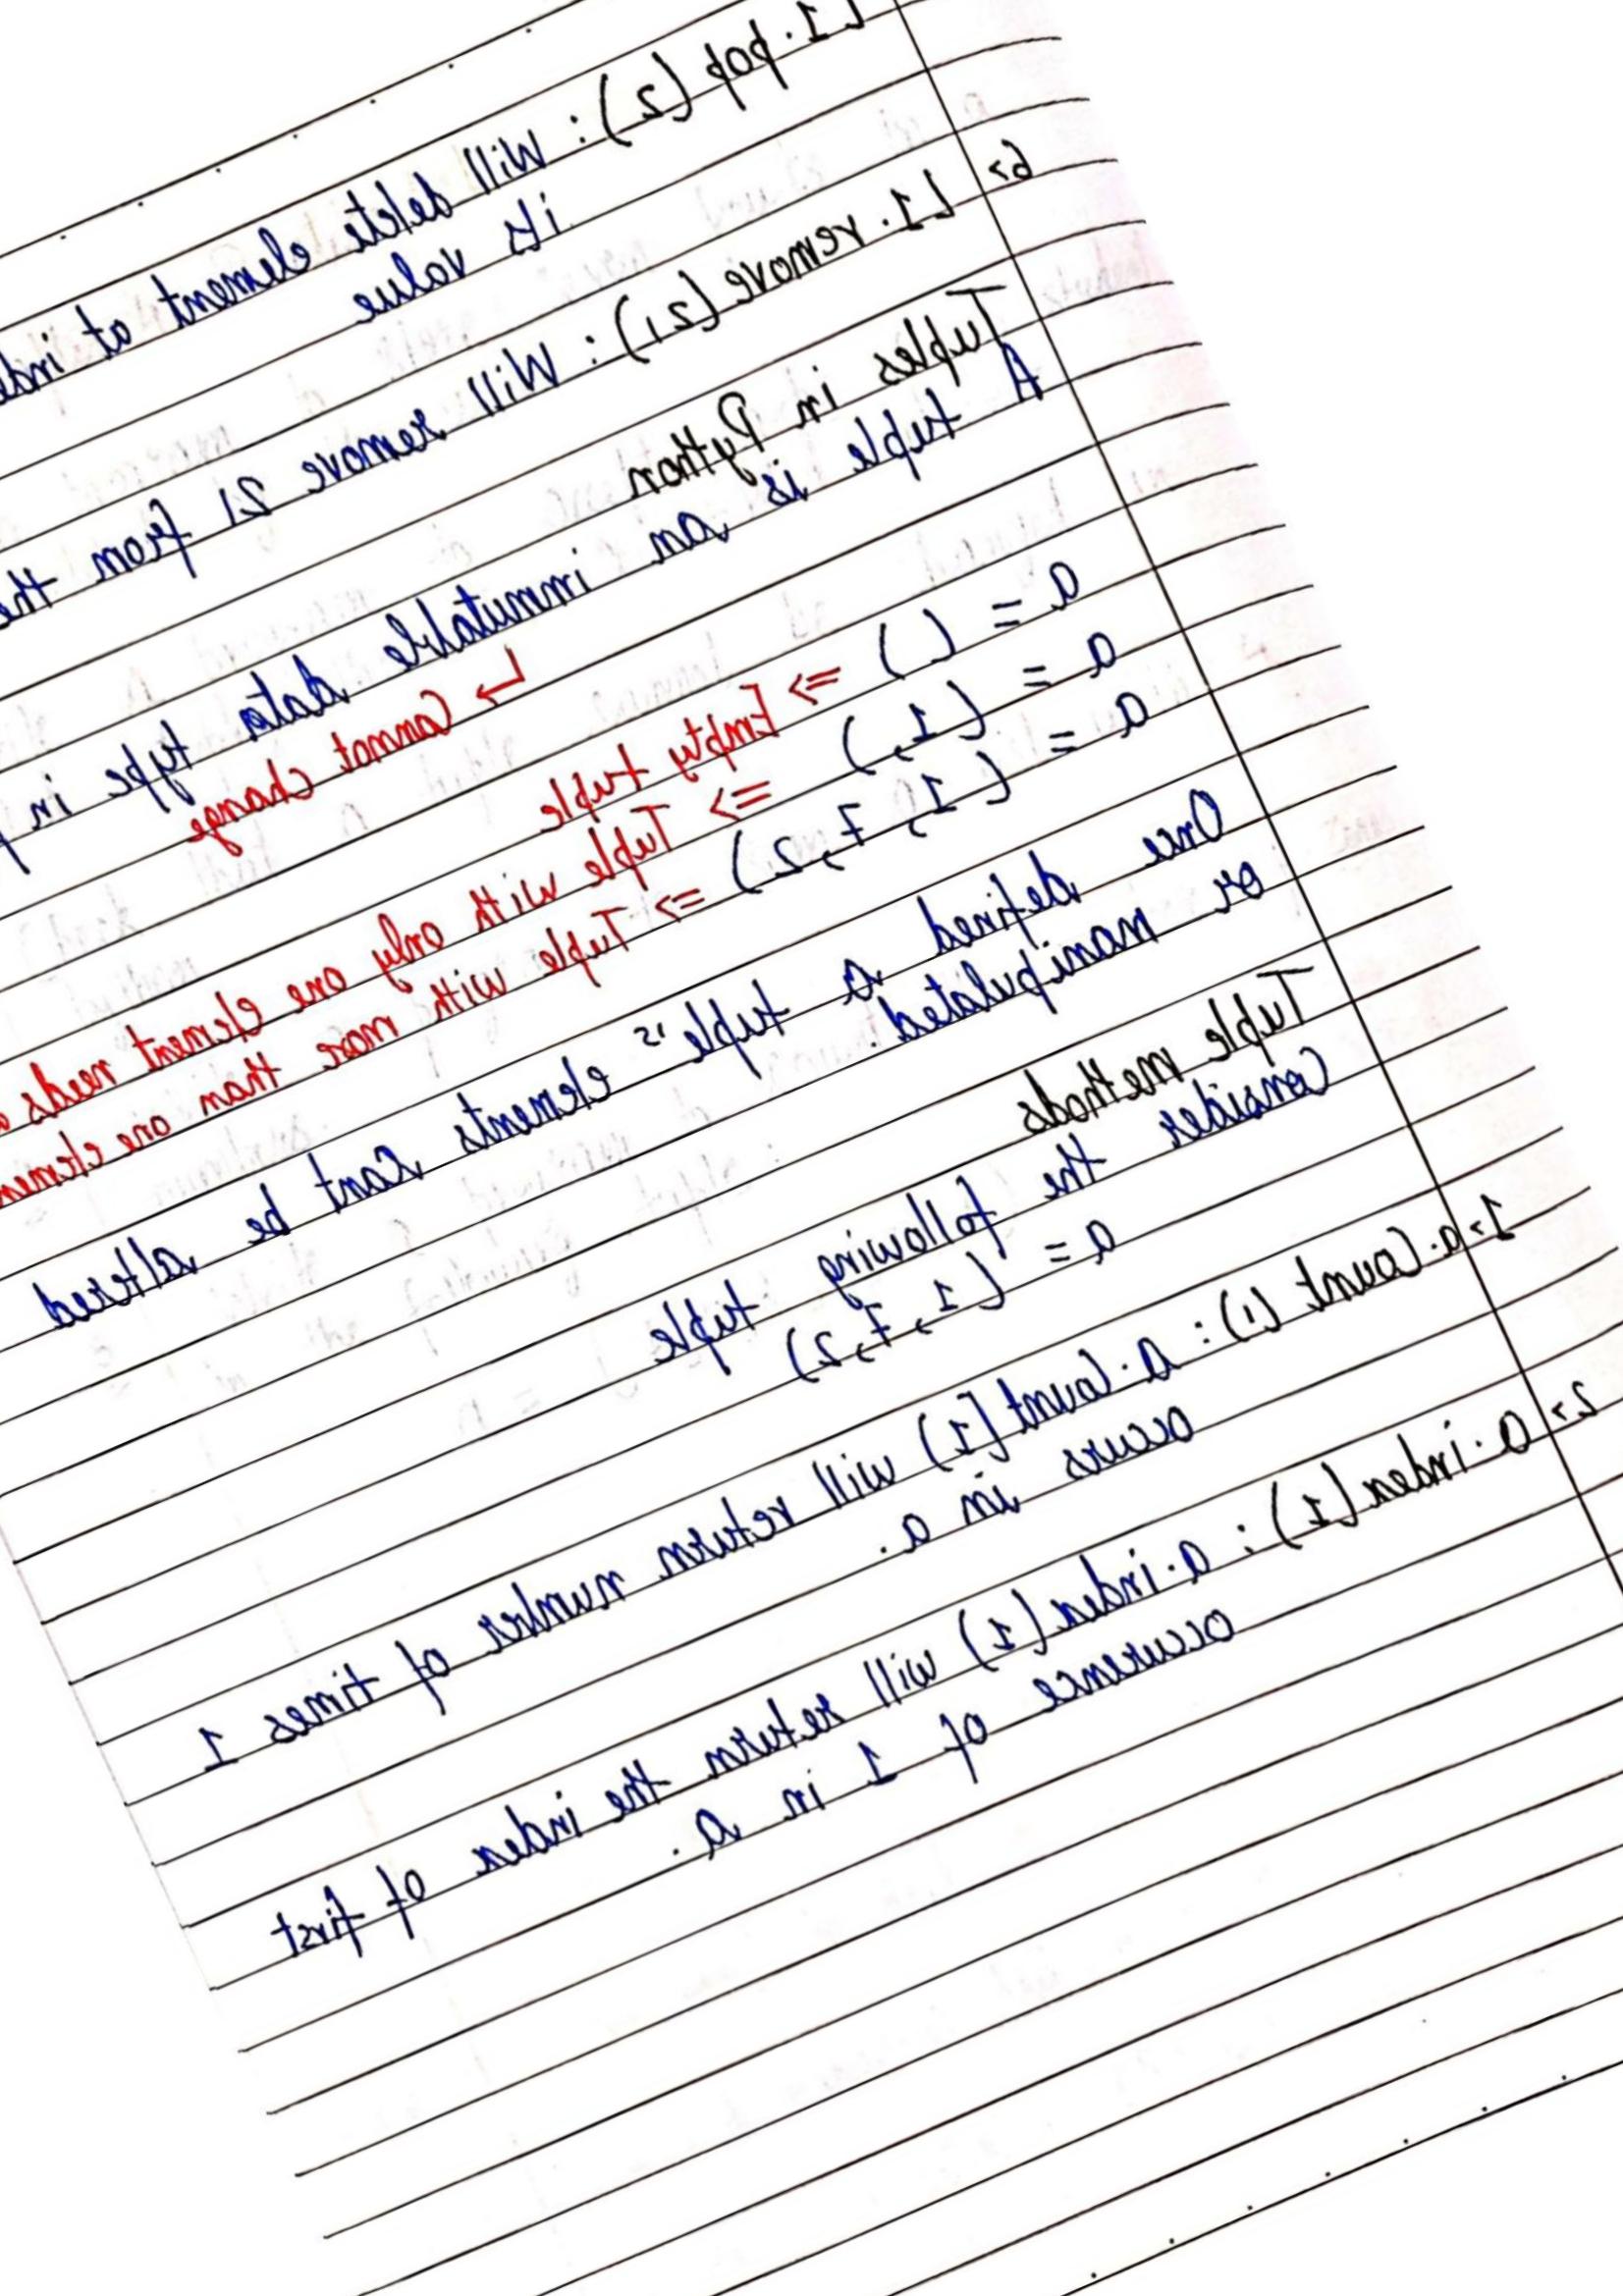 L1.pop (2): Will delete element at ind
its value
6> L1.remove (21): Will remove 21 from the
Tuples in Python
A tuple is an immutable data type in
↳ Cannot change
a = () => Empty tuple
a = (1,) => Tuple with only one element needs
a = (1, 7, 2) => Tuple with more than one elemen
Once defined a tuple's elements Can't be altered
or manipulated.
Tuple methods
Consider the following tuple
a = (1, 7, 2)
1> a.Count (1): a.Count (1) will return number of times 1
occurs in a.
2> a.index (1): a.index (1) will return the index of first
occurence of 1 in a.